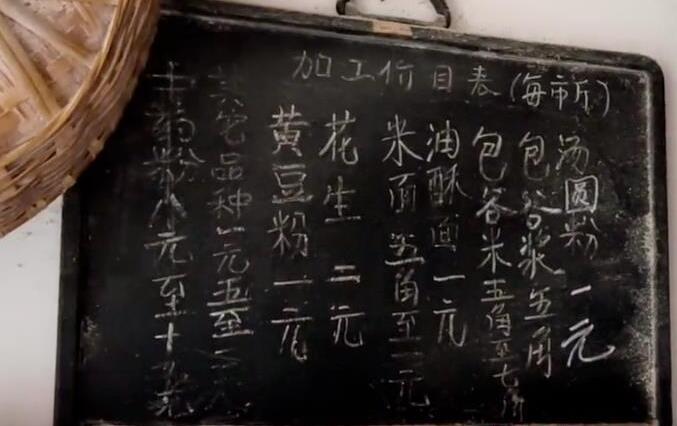 加工价目表(每市斤)
汤圆粉 一元
包谷浆 五角
包谷米五角至七角
油酥面 一元
米面五角至一元
花生 二元
黄豆粉 一元
其它品种一元五至二元
中药粉八元至十元